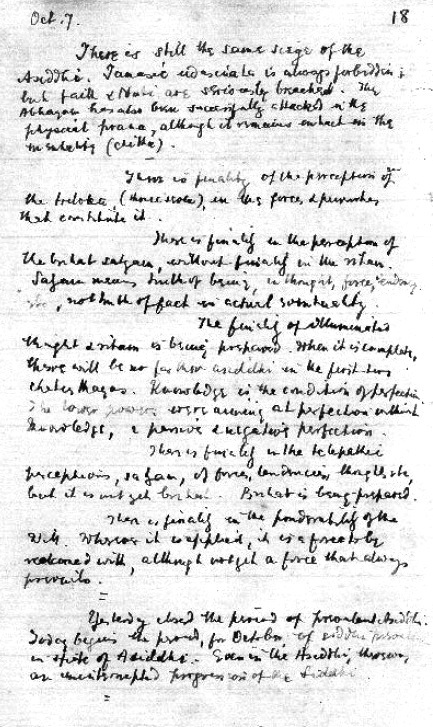 Oct. 7. 18
There is still the same siege of the
Asiddhi. Tamasic udasinata is always forbidden;
but faith & Nati are seriously breached. The
Abhayam has also been successfully attacked in the
physical prana, although it remains intact in the
mentality (chitta).
There is finality of the perception of
the triloka, in the forces & purushas
that constitute it.
There is finality in the perception of
the brihat satyam, without finality in the ritam.
Satyam means truth of being, in thought, force, tendency
etc, not truth of fact in actual eventuality.
The finality of illuminated
thought & ritam is being prepared. When it is complete,
there will be no farther asiddhi in the first two
chatusthayas. Knowledge is the condition of perfection.
The lower powers were aiming at perfection without
knowledge, a passive & negative perfection.
There is finality in the telepathic
perceptions, satyam, of forces, tendencies, thoughts etc,
but it is not yet brihat. Brihat is being prepared.
There is finality in the ponderability of the
Will. Wherever it is applied, it is a force to be
reckoned with, although not yet a force that always
prevails.
Yesterday closed the period of prevalent Asiddhi.
Today begins the period, for October, of siddhi
in spite of Asiddhi. Even in the Asiddhi, there was
an uninterrupted progression of the Siddhi.